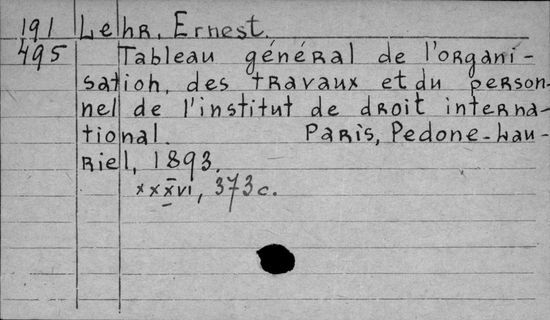 191 Lehr, Ernest.
495 Tableau général de l'organi-
sation, des travaux et du person-
nel de l'institut de droit interna-
tional. Paris, Pedone-Lau-
riel, 1893.
xxxvi, 373 c.